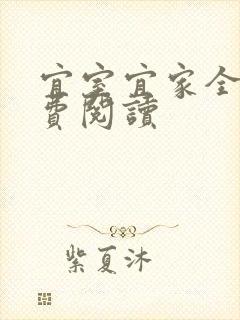 宜室宜家全
費閱讀
紫夏沐